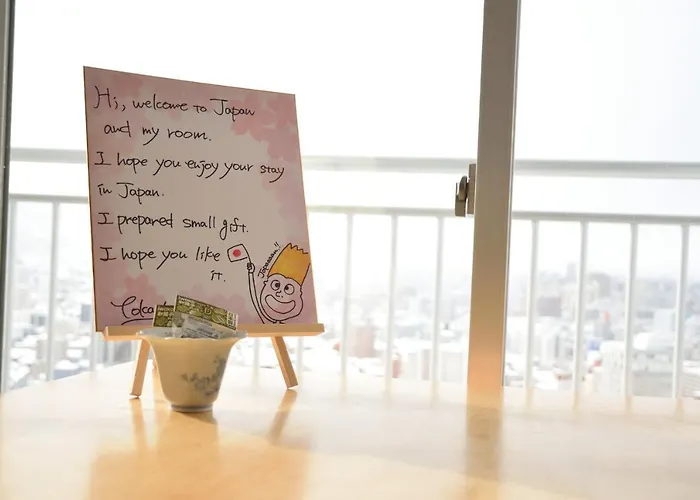 Hi, welcome to Japan
and my room.
I hope you enjoy your stay
in Japan.
I prepared small gift.
I hope you like
it.